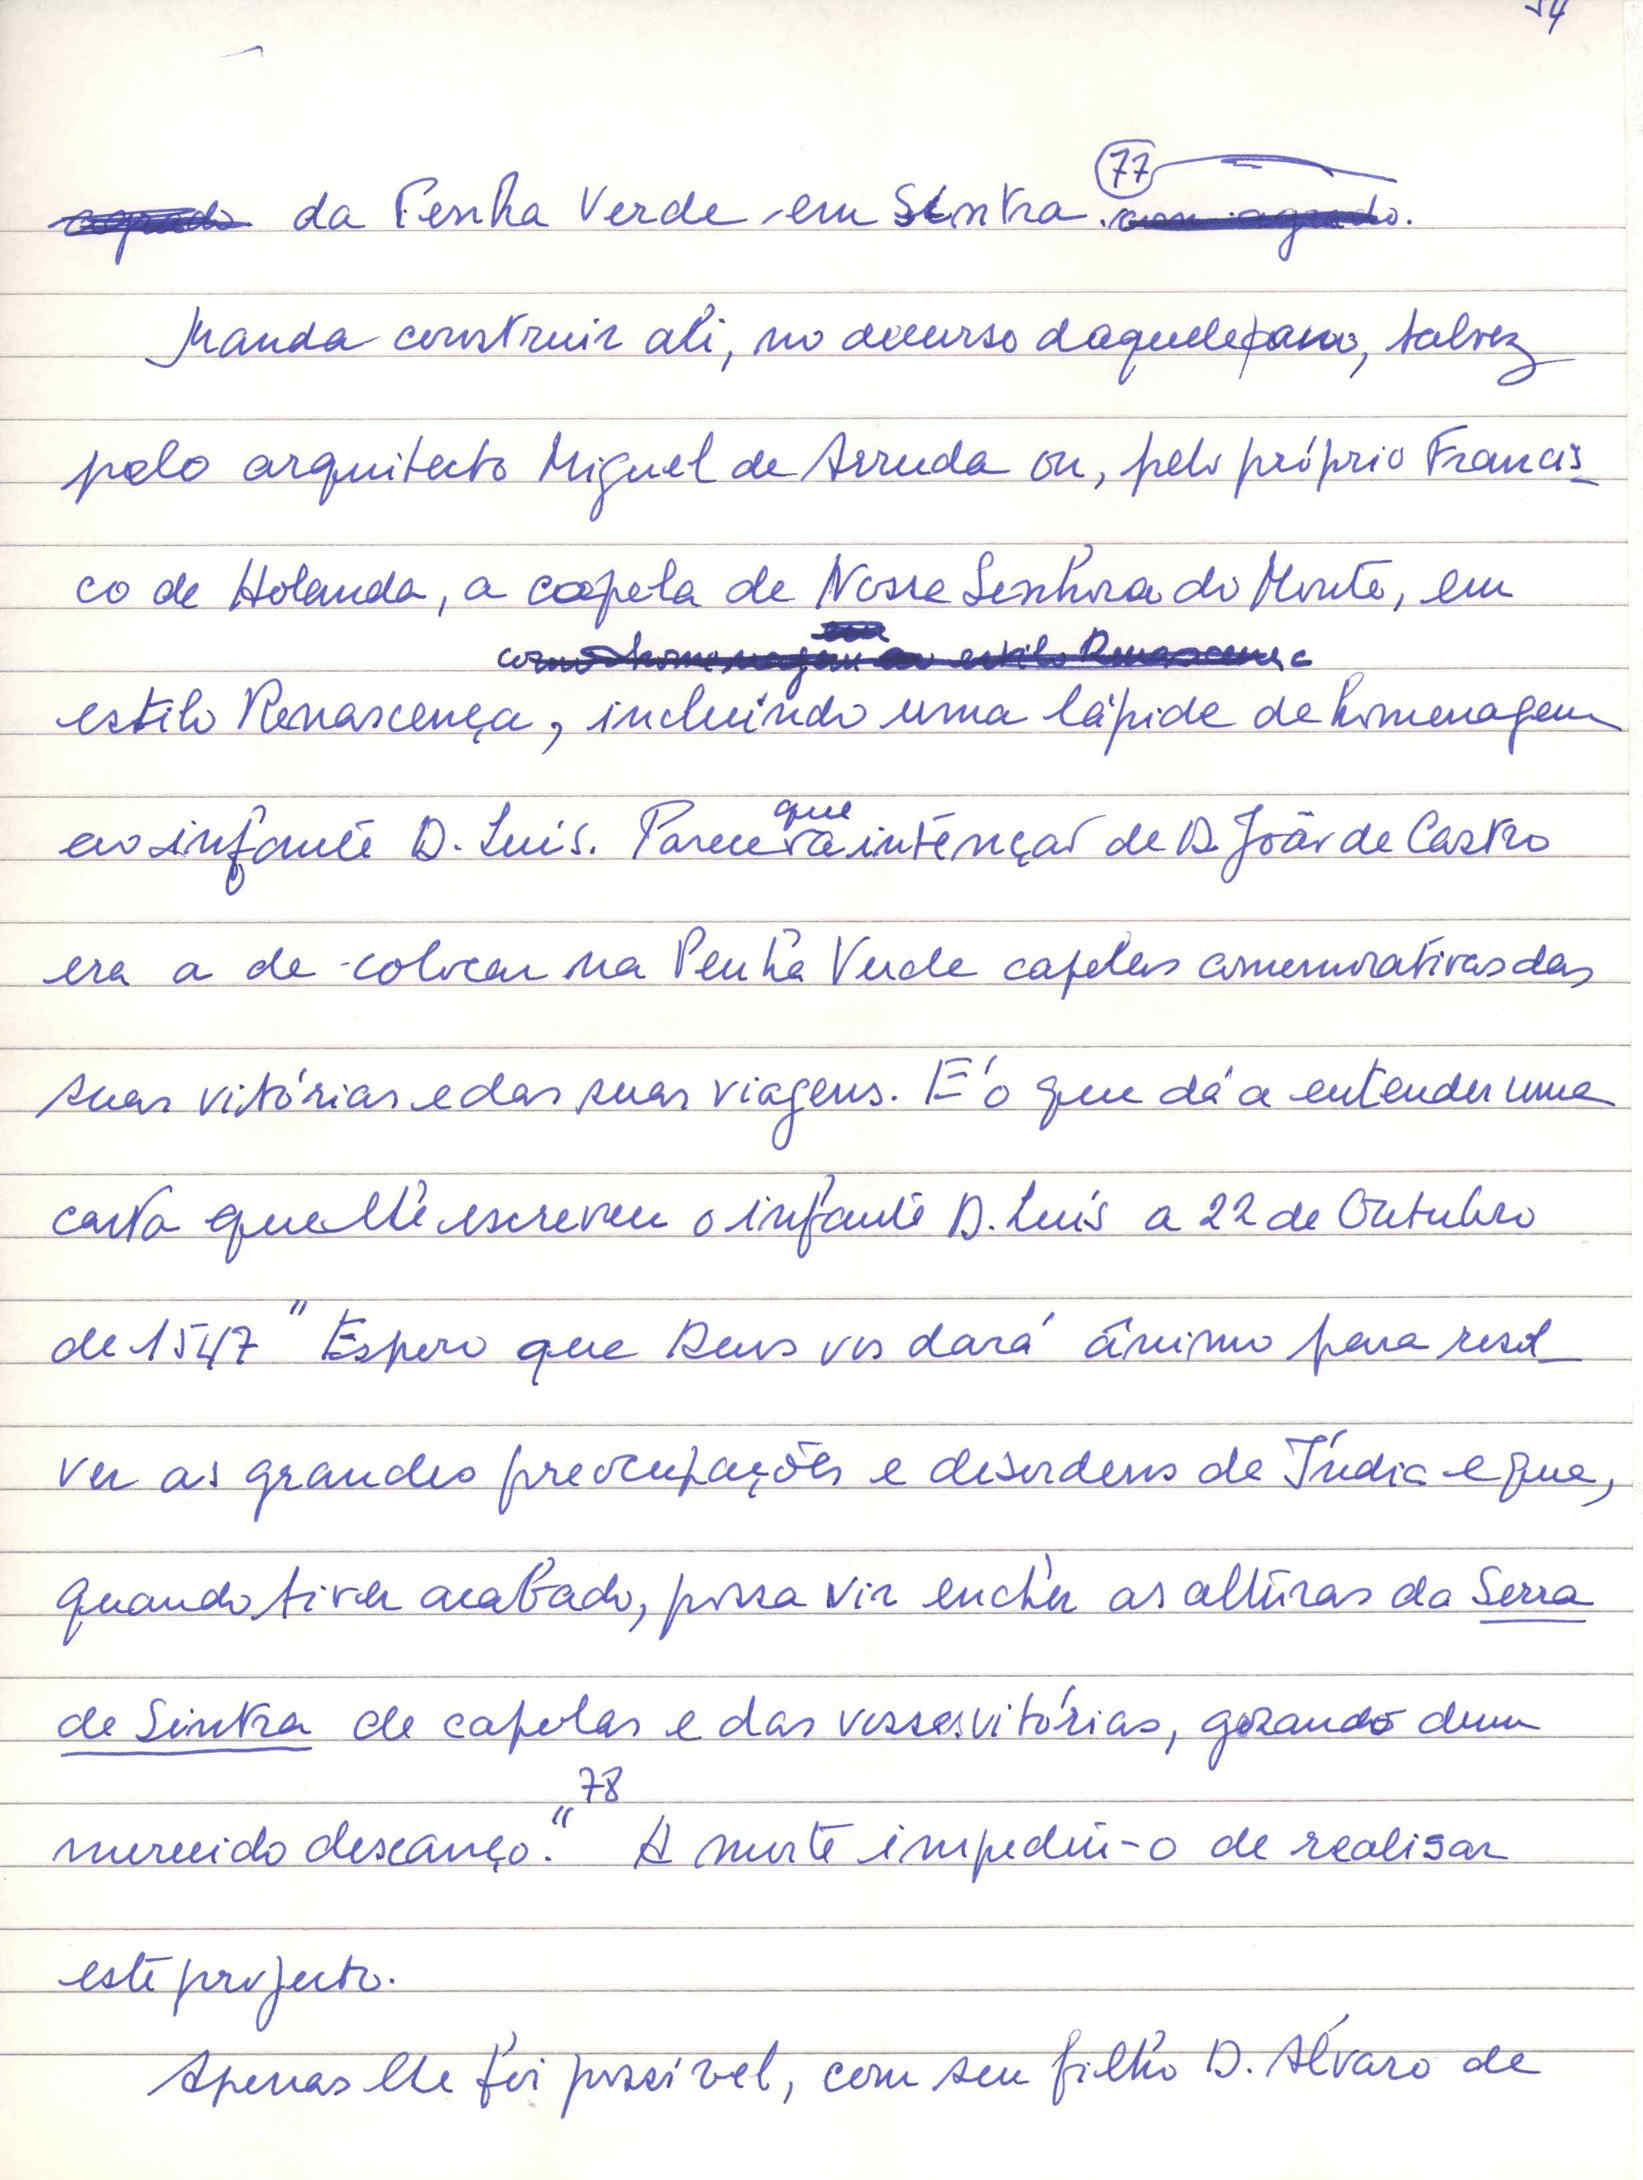 54
77
da Penha Verde em Sintra.
Manda construir ali, no decurso daquele ano, talvez
pelo arquitecto Miguel de Arruda ou, pelo próprio Francis_
co de Holanda, a capela de Nossa Senhora do Monte, em
como homenagem ao estilo Renascença
estilo Renascença, incluíndo uma lápide de homenagem
ao infante D. Luís. Parece que a intenção de D. João de Castro
era a de colocar na Penha Verde capelas comemorativas das
suas vitórias e das suas viagens. É o que dá a entender uma
carta que lhe escreveu o infante D. Luís a 22 de Outubro
de 1547 "Espero que Deus vos dará ânimo para resol_
ver as grandes preocupações e desordens da Índia e que,
quando tiver acabado, possa vir encher as alturas da Serra
de Sintra de capelas e das vossas vitórias, gozando dum
merecido descanço." 78 A morte impediu-o de realisar
este projecto.
Apenas lhe foi possível, com seu filho D. Álvaro de